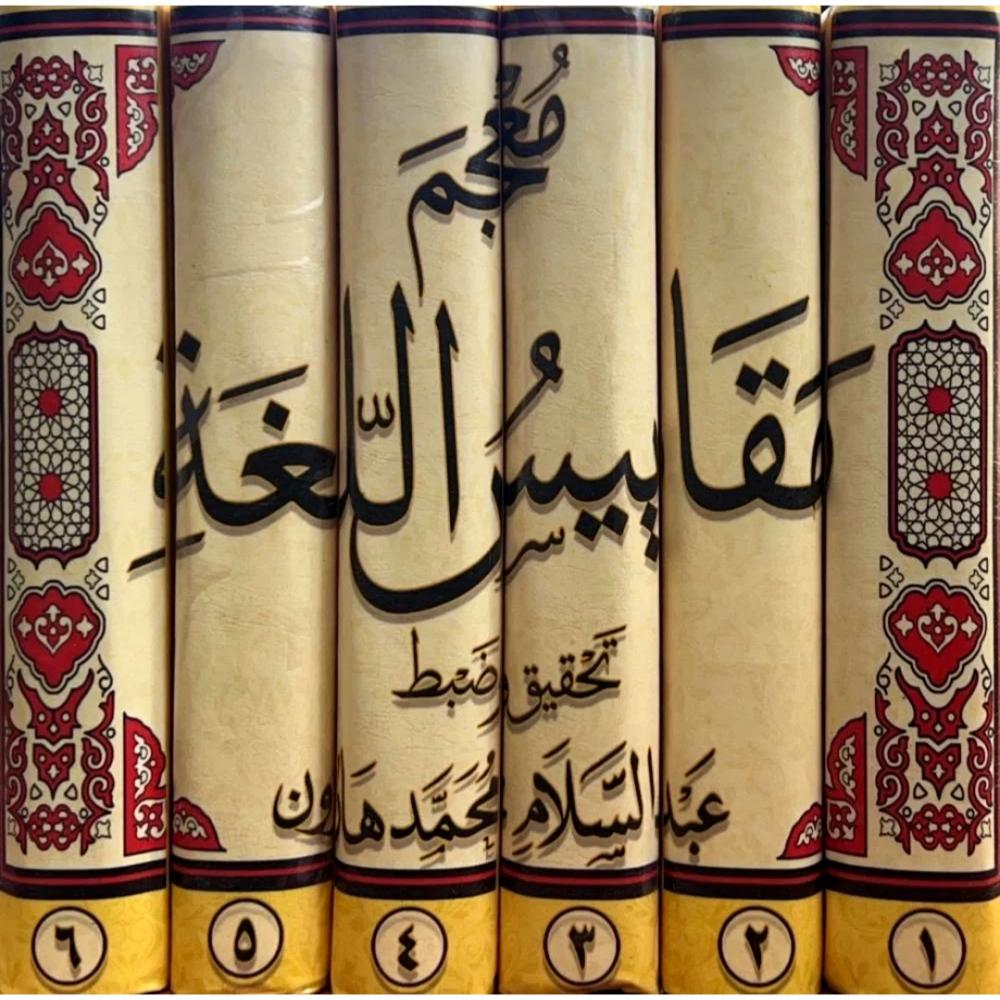 مُعْجَم
مَقَاييسُ اللّغَةِ
تَحْقيق وضَبط
عَبْد السَّلَامِ مُحَمَّد هَارون
١ ٢ ٣ ٤ ٥ ٦